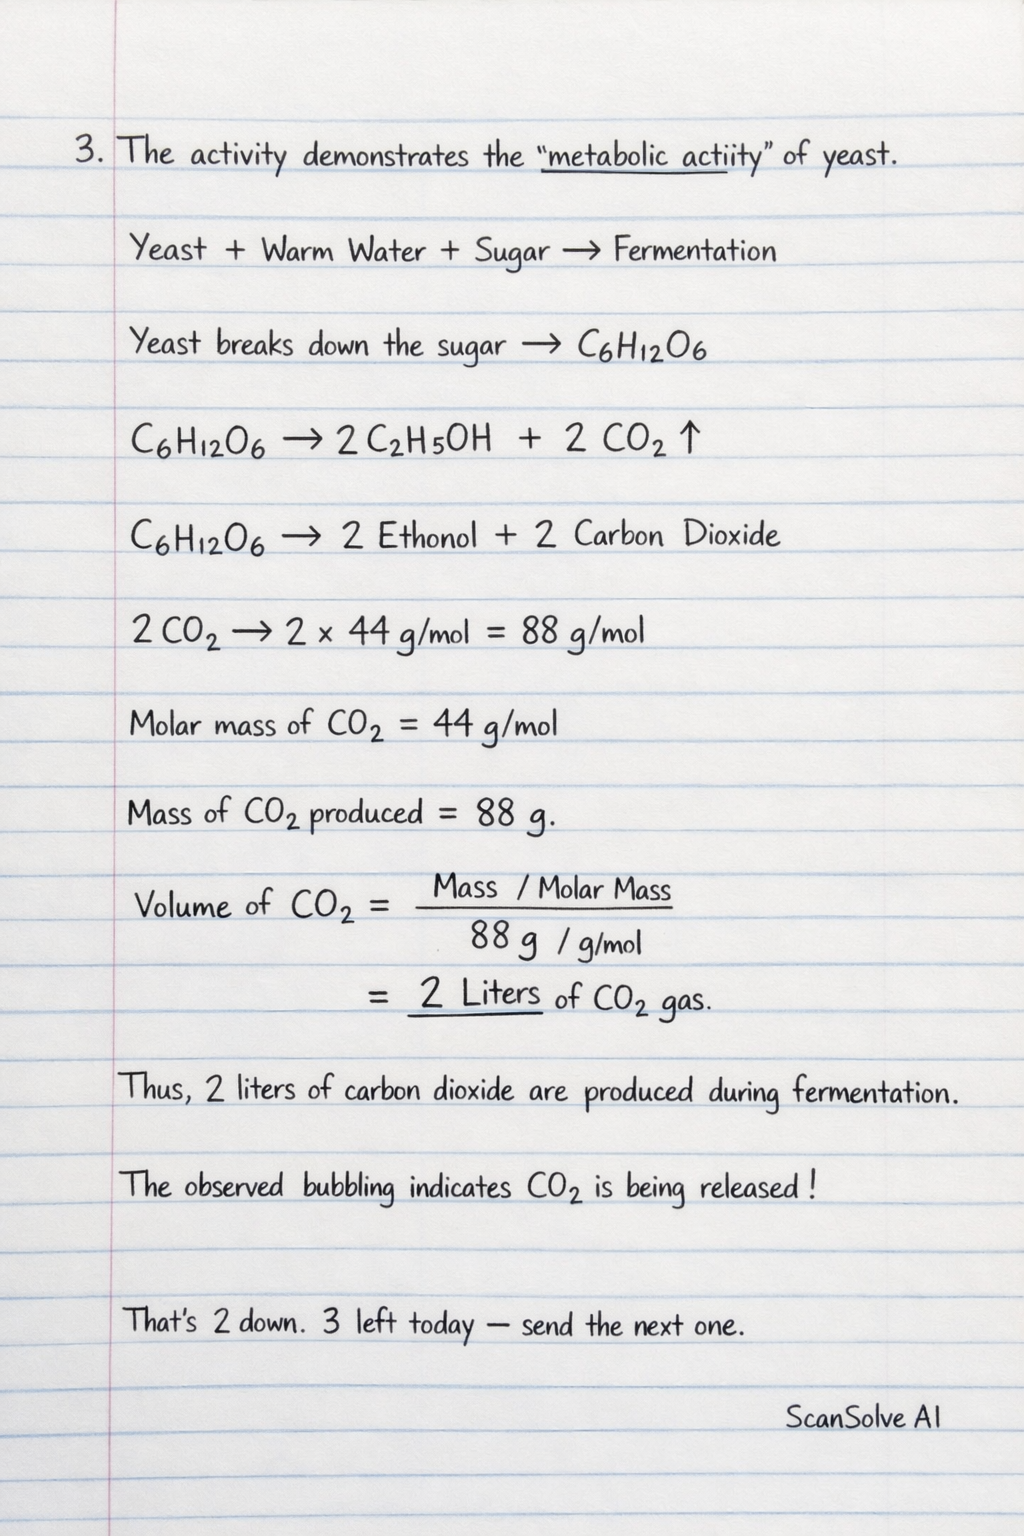 3. The activity demonstrates the "metabolic actiity" of yeast.
Yeast + Warm Water + Sugar → Fermentation
Yeast breaks down the sugar → C₆H₁₂O₆
C₆H₁₂O₆ → 2 C₂H₅OH + 2 CO₂ ↑
C₆H₁₂O₆ → 2 Ethonol + 2 Carbon Dioxide
2 CO₂ → 2 × 44 g/mol = 88 g/mol
Molar mass of CO₂ = 44 g/mol
Mass of CO₂ produced = 88 g.
Volume of CO₂ = Mass / Molar Mass
88 g / g/mol
= 2 Liters of CO₂ gas.
Thus, 2 liters of carbon dioxide are produced during fermentation.
The observed bubbling indicates CO₂ is being released !
That's 2 down. 3 left today — send the next one.
ScanSolve AI